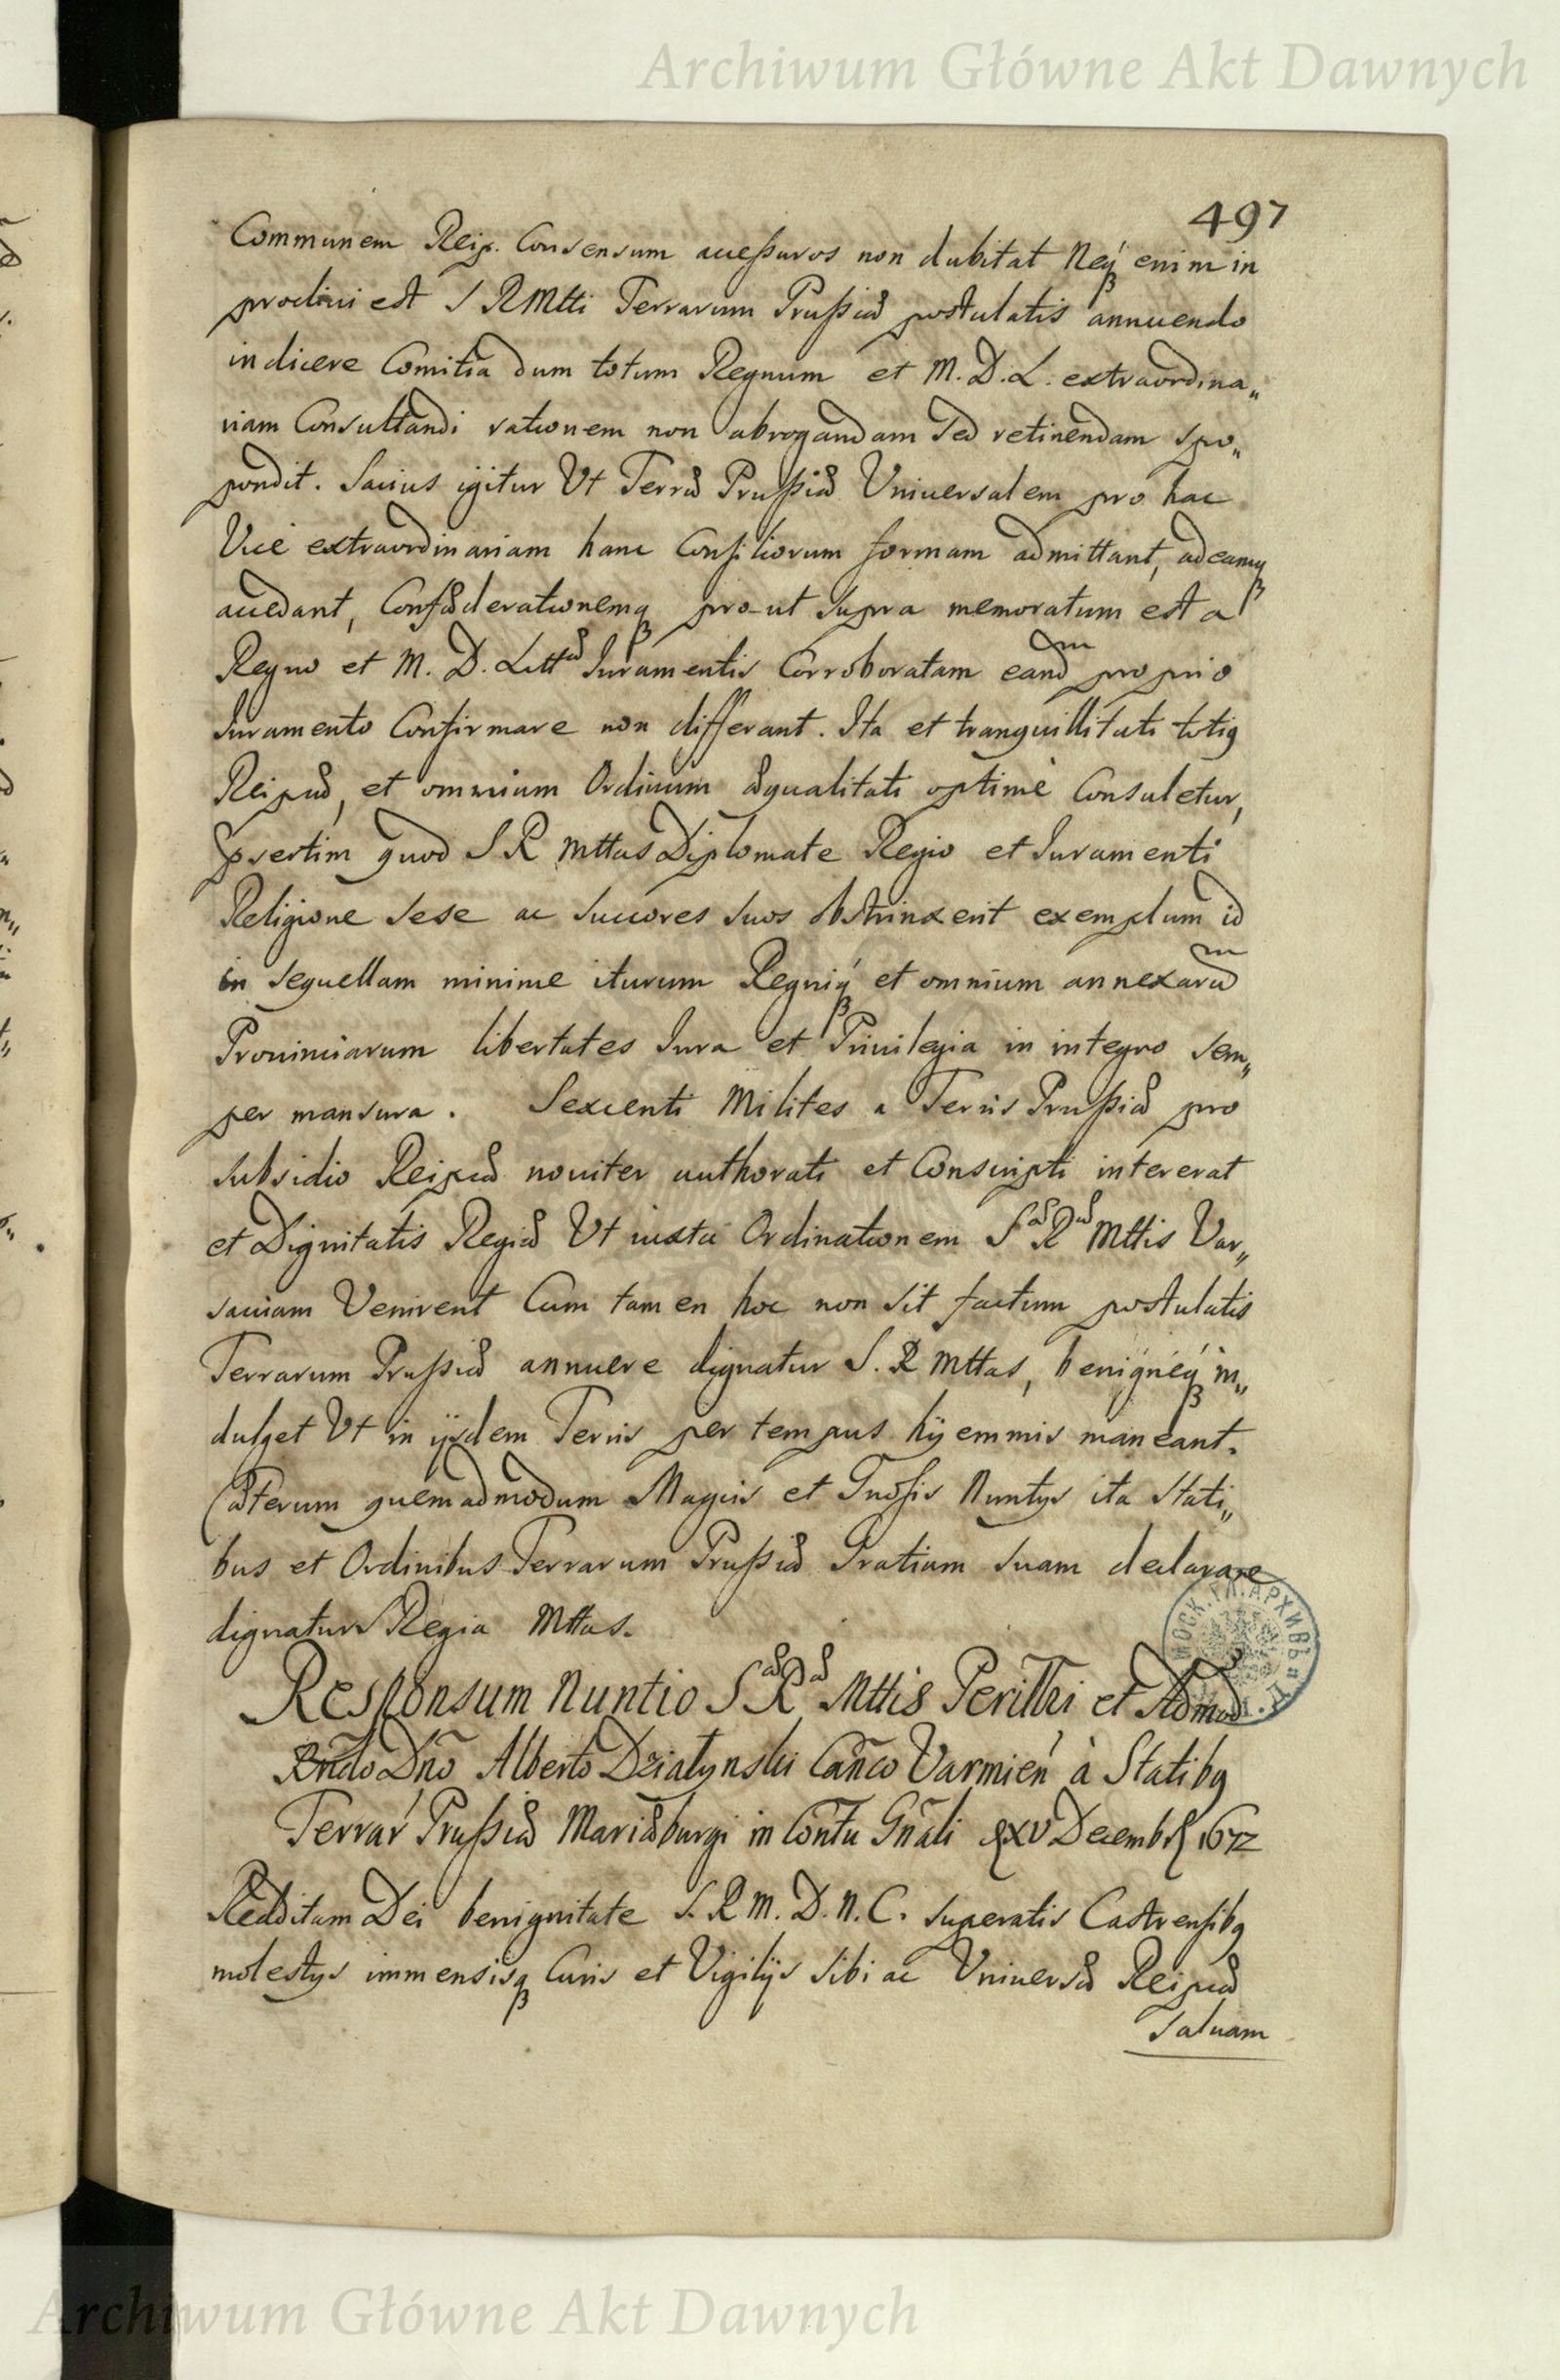 Archiwum Główne Akt Dawnych
497
Communem Reip. Consensum accessuros non dubitat Neq́ enim in
proclivi est S R Mtti Terrarum Prussiæ postulatis annuendo
indicere Comitia dum totum Regnum et M. D. L. extraordina„
riam Consultandi rationem non abrogandam sed retinendam spo„
pondit. Sacius igitur Vt Terræ Prussiæ Vniversalem pro hac
Vice extraordinariam hanc Consiliorum formam admittant, ad eamq
accedant, Confæderationemq pro-ut supra memoratum est a
Regno et M. D. Littæ Juramentis Corroboratam eandm proprio
Juramento Confirmare non differant. Ita et tranquillitati totiq
Reipuæ, et omnium Ordinum æqualitati optimè Consuletur,
prsertim quod S R Mttas Diplomate Regio et Juramenti
Religione sese ac succores suos obstrinxerit exemplum id
in sequellam minime iturum Regniq́ et omnium annexarum
Prouinciarum libertates Jura et Priuilegia in integro sem„
per mansura. Sexcenti Milites a Terris Prussiæ pro
subsidio Reipuæ noviter authorati et Conscripti intererat
et Dignitatis Regiæ Vt iuxta Ordinationem Sæ Ræ Mttis Var„
sauiam Venirent Cum tamen hoc non sit factum postulatis
Terrarum Prussiæ annuere dignatur S. R Mttas, benignéq́ in„
dulget Vt in ijsdem Terris per tempus hyemmis maneant.
Cæterum quemadmodum Magcis et Gnosis Nuntys ita Stati„
bus et Ordinibus Terrarum Prussiæ Gratiam suam declarare
dignatur Regia Mttas.
Responsum Nuntio Sæ Ræ Mttis Perillri et Admod
Rndo Dno Alberto Dzialynski Canco Varmien à Statibq
Terrar Prussiæ Mariæburgi in Contu Gnali XV Decembr 1672
Redditam Dei benignitate S. R M. D. N. C. superatis Castrensibq
molestys immensisq Curis et Vigilijs sibi ac Vniversæ Reipuæ
saluam
МОСК. ГЛ. АРХИВЪ
Archiwum Główne Akt Dawnych